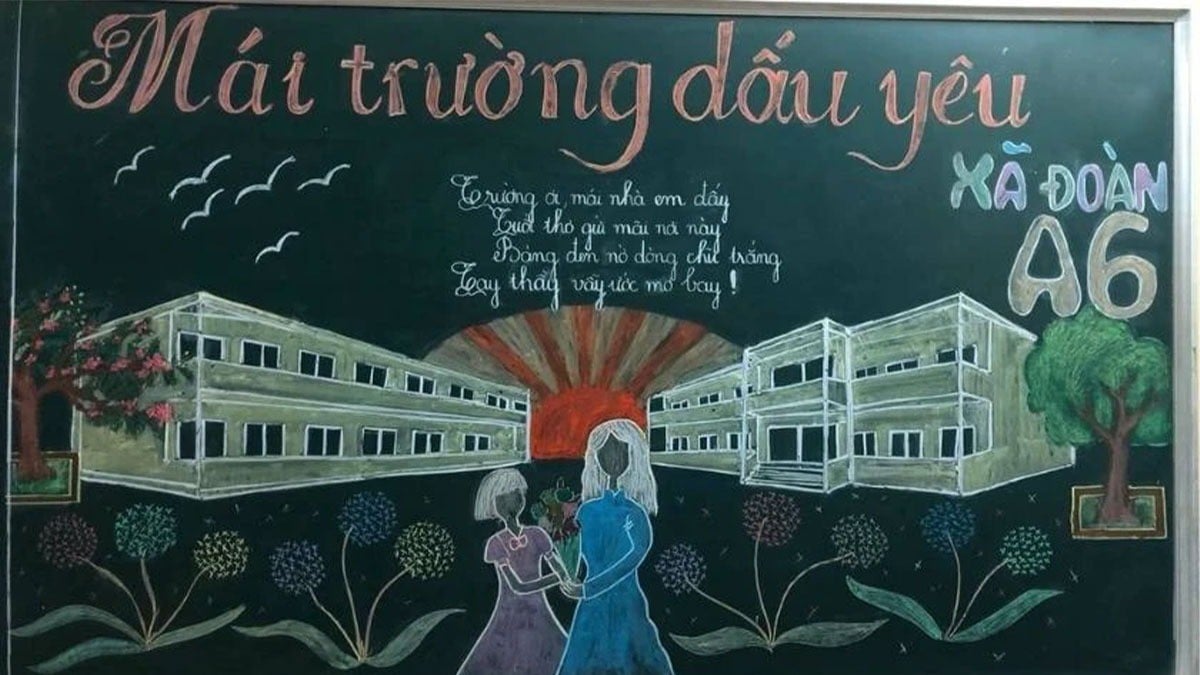 Mái trường dấu yêu
XÃ ĐOÀN
A6
Trường ơi, mái nhà em đấy
Tuổi thơ giữ mãi nơi này
Bảng đen nở dòng chữ trắng
Tay thầy vẫy ước mơ bay !